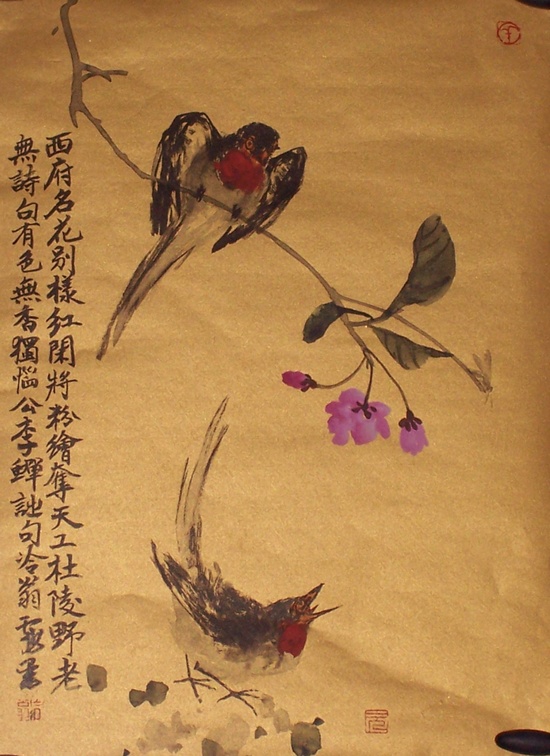 西府名花别樣红閑將粉繪奪天工杜陵野老
無詩句有色無香獨惱公李鱓詩句冷翁